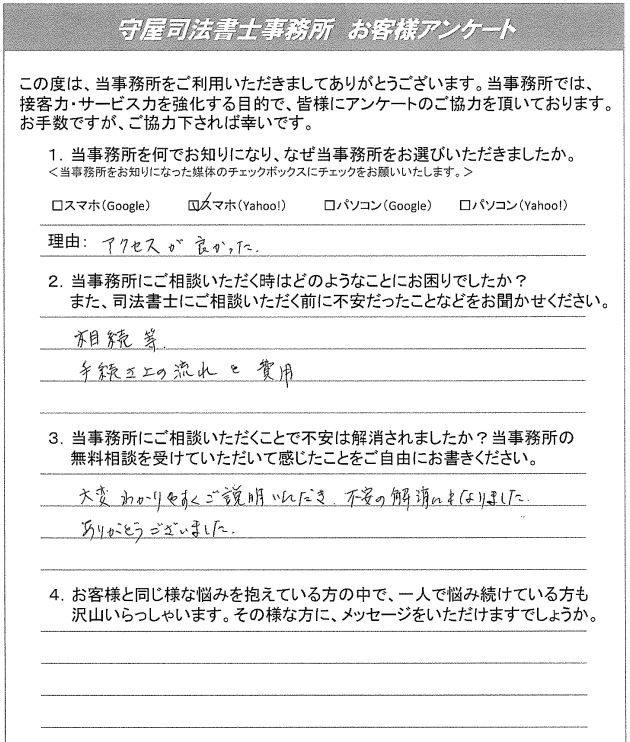 守屋司法書士事務所 お客様アンケート
この度は、当事務所をご利用いただきましてありがとうございます。当事務所では、
接客力・サービス力を強化する目的で、皆様にアンケートのご協力を頂いております。
お手数ですが、ご協力下されば幸いです。
1. 当事務所を何でお知りになり、なぜ当事務所をお選びいただきましたか。
＜当事務所をお知りになった媒体のチェックボックスにチェックをお願いいたします。＞
□スマホ(Google) ☑スマホ(Yahoo!) □パソコン(Google) □パソコン(Yahoo!)
理由: アクセスが良かった.
2. 当事務所にご相談いただく時はどのようなことにお困りでしたか?
また、司法書士にご相談いただく前に不安だったことなどをお聞かせください。
相続等.
手続き上の流れと費用
3. 当事務所にご相談いただくことで不安は解消されましたか?当事務所の
無料相談を受けていただいて感じたことをご自由にお書きください。
大変わかりやすくご説明いただき、不安の解消にもなりました.
ありがとうございました.
4. お客様と同じ様な悩みを抱えている方の中で、一人で悩み続けている方も
沢山いらっしゃいます。その様な方に、メッセージをいただけますでしょうか。